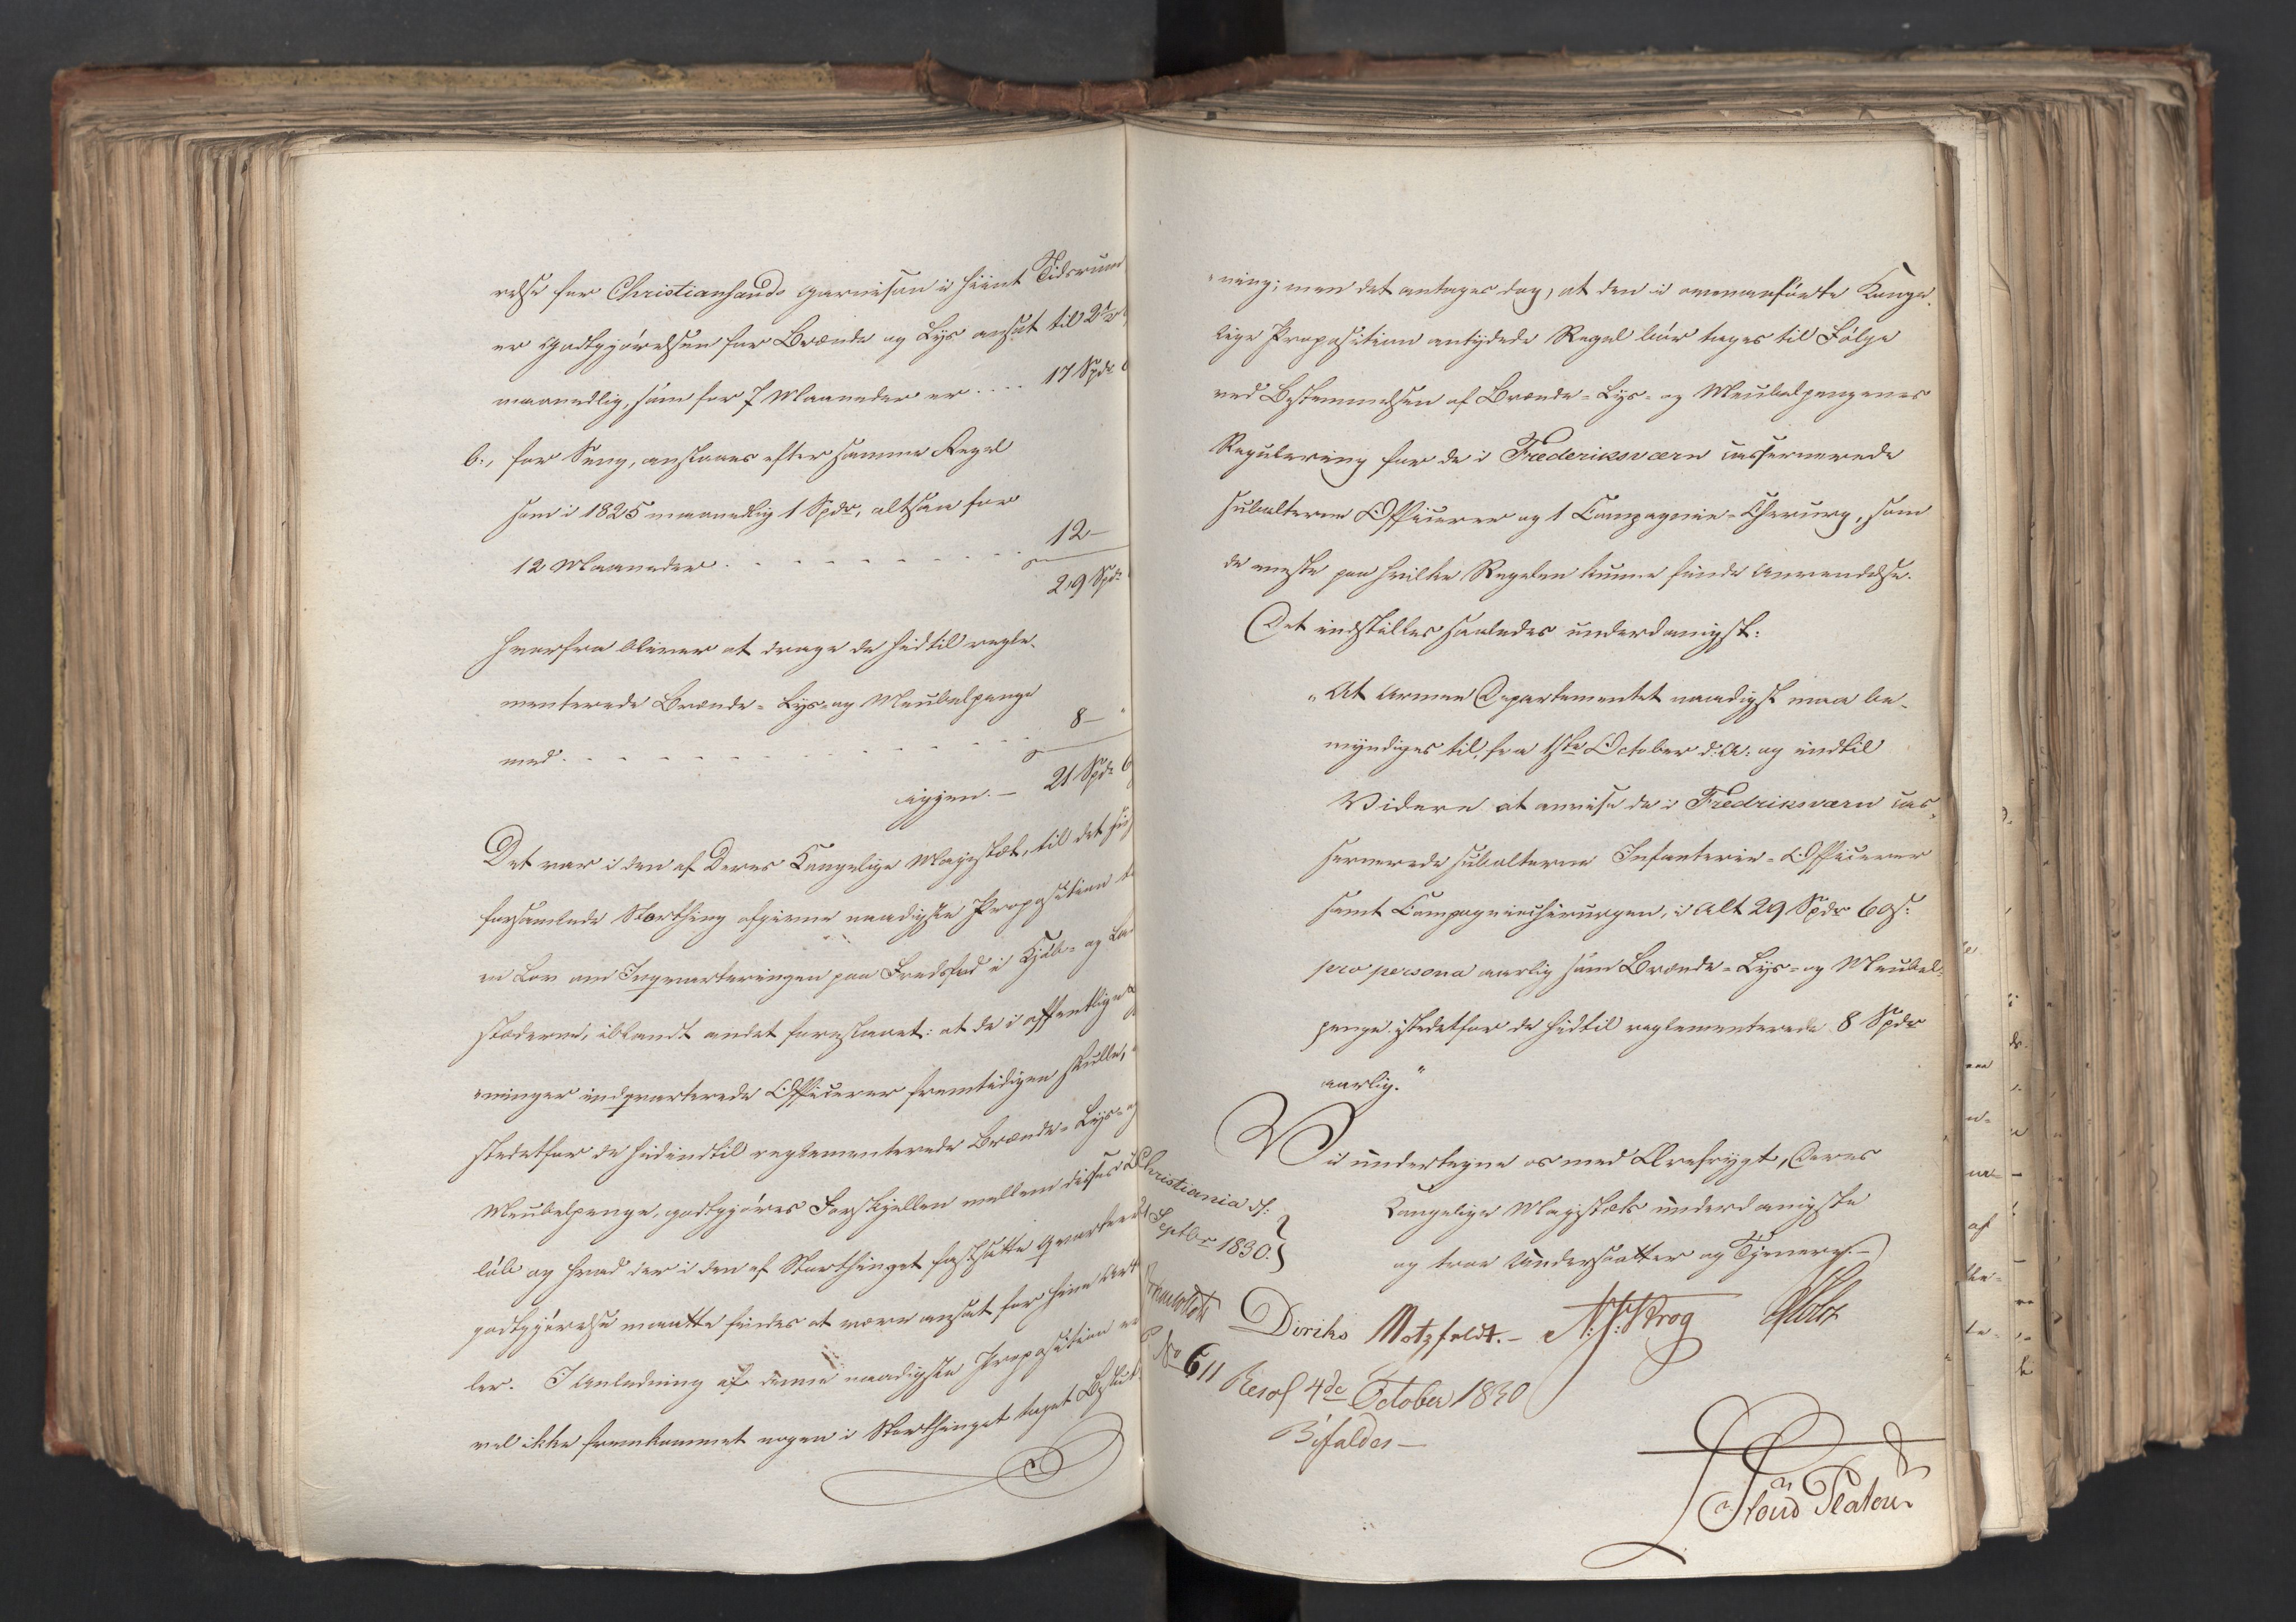 relse for Christiansands Garnison i hiint Tidsrum
er Godtgjörelsen for Brænde og Lys ansat til
maanedlig, som for 7 Maaneder er .... 17 Spdr
b., for Seng, anslaaes efter samme Regel
som i 1825 maanedlig 1 Spdr, altsaa for
12 Maaneder . . . . . . . . . 12 –
29 Spdr
hvorfra bliver at drage de hidtil regle-
menterede Brænde- Lys- og Meubelpenge
med . . . . . . . . . . . 8 – "
igjen. – 21 Spdr
Det var i den af Deres Kongelige Majestæt, til det sidst
forsamlede Storthing afgivne naadigste Proposition
en Lov om Inqvarteringen paa Fredsfod i Kjöb- og La-
stæderne, iblandt andet foreslaaet: at de i offentlige
ninger indqvarterede Officerer fremtidigen skulle,
stedetfor de hidindtil reglementerede Brænde- Lys- og
Meubelpenge, godtgjöres Forskjellen mellem disses
löb og hvad der i den af Storthinget fastsatte Qvarteer-
godtgjörelse maatte findes at være ansat for hine Art
ler. I Anledning af denne naadigste Proposition er
vel ikke fremkommet nogen i Storthinget taget Beslut-
ning; men det antages dog, at den i ovenanförte Konge-
lige Proposition antydede Regel bör tages til Fölge
ved Bestemmelsen af Brænde- Lys- og Meubelpengenes
Regulering for de i Frederiksværn casernerede
subalterne Officerer og 1 Compagnie-Chirurg, som
de eneste paa hvilke Regelen kunne finde Anvendelse.
Det indstilles saaledes underdanigst:
"At Armee Departementet naadigst maa be-
myndiges til, fra 1ste October d: A: og indtil
Videre at anvise de i Fredriksværn cas-
sernerede subalterne Infanterie-Officerer
samt Compagniechirurgen, i Alt 29 Spdr 60 s:
pro persona aarlig som Brænde- Lys- og Meubel-
penge istedetfor de hidtil reglementerede 8 Spdr
aarlig."
Vi undertegne os med Ærefrygt, Deres
Kongelige Majestæts underdanigste
og troe Undersaatter og Tjenere. –
Christiania d:
Septbr 1830.
Diriks Motzfeldt. – Krog
No 611
Resol 4de October 1830
Bifaldes –
Platou